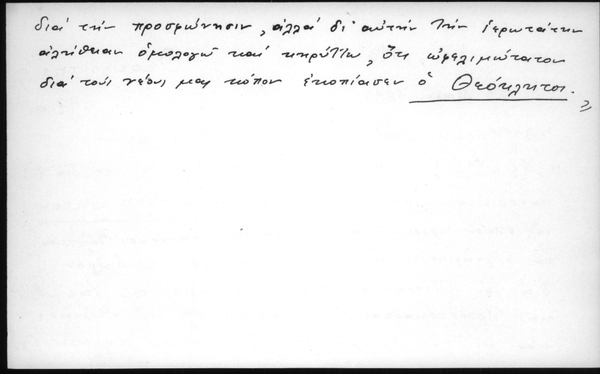 διά τήν προσφώνησιν, ἀλλά δι' αὐτήν τήν ἱερωτάτην
ἀλήθειαν ὁμολογῶ καί κηρύττω, ὅτι ὠφελιμώτατον
διά τούς νέους μας κόπον ἐκοπίασεν ὁ Θεόκλητος. »